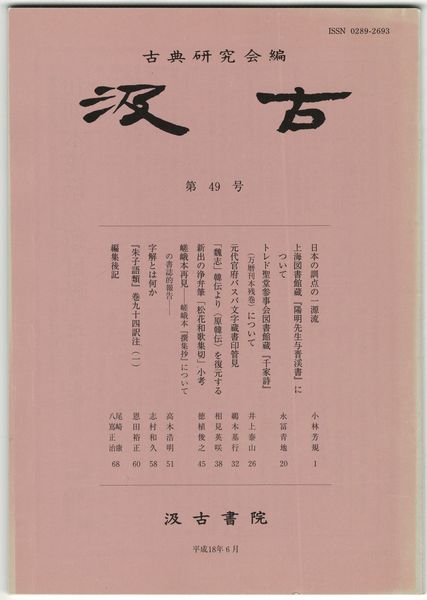 ISSN 0289-2693
古典研究会編
汲古
第 49 号
日本の訓点の一源流 小林芳規 1
上海図書館蔵『陽明先生与晋渓書』に
ついて 永冨青地 20
トレド聖堂参事会図書館蔵『千家詩』
(万暦刊本残巻)について 井上泰山 26
元代官府パスパ文字蔵書印管見 鶴木基行 32
「魏志」韓伝より〈原韓伝〉を復元する 相見英咲 38
新出の浄弁筆「松花和歌集切」小考 徳植俊之 45
嵯峨本再見──嵯峨本『撰集抄』について
の書誌的報告── 高木浩明 51
字解とは何か 志村和久 58
『朱子語類』巻九十四訳注(一) 恩田裕正 60
編集後記 尾崎康
八嶌正治 68
汲古書院
平成18年6月